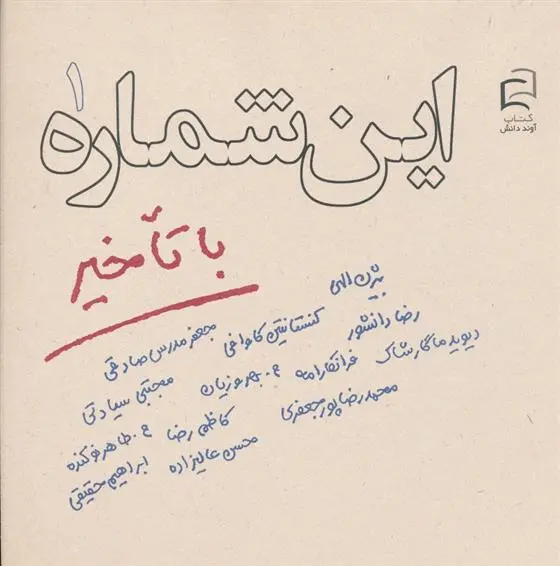 این شماره ۱
کتاب
آوند دانش
با تأخیر
بیژن الهی
کنستانتین کاوافی
جعفر مدرس صادقی
رضا دانشور
ع. بهروزیان
مجتبی سیادتی
دیوید ماگارشاک
فرانکا رامه
کاظم رضا
ع. طاهر نوکنده
محمدرضا پورجعفری
محسن عالیزاده
ابراهیم حقیقی